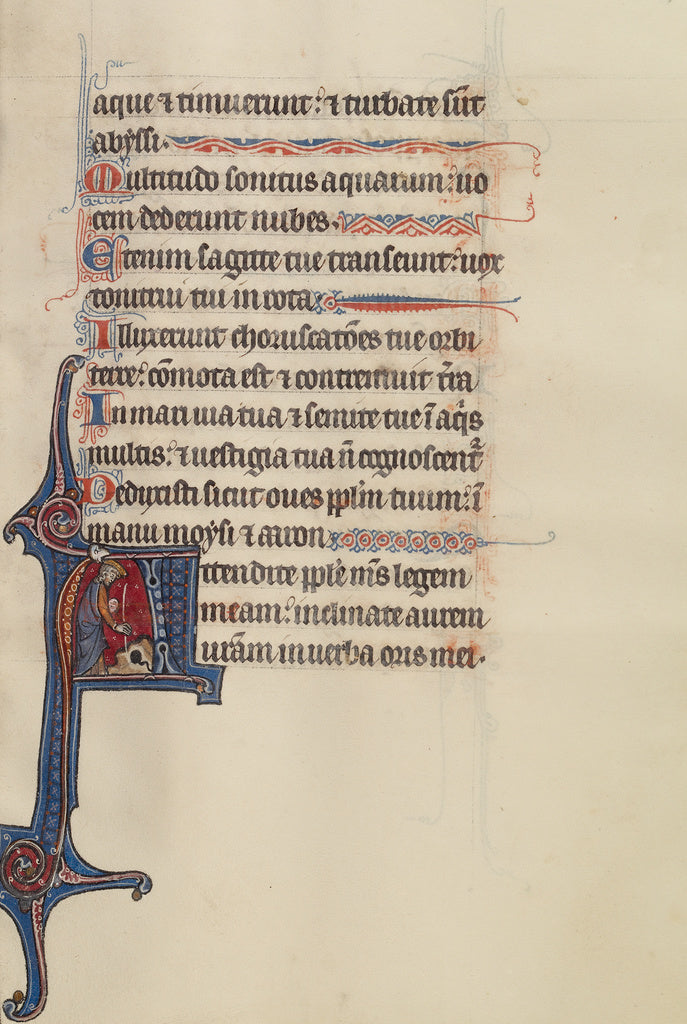 aque ⁊ timuerunt: ⁊ turbate sūt
abyssi.
Multitudo sonitus aquarum: uo
cem dederunt nubes.
Etenim sagitte tue transeunt: uox
tonitrui tui in rota
Illuxerunt choruscatōes tue orbi
terre: cōmota est ⁊ contremuit tr̄a
In mari uia tua ⁊ semite tue ī aq̄s
multis: ⁊ uestigia tua n̄ cognoscent᷑
Deduxisti sicut oues ppl̄m tuum: ī
manu moysi ⁊ aaron
Attendite ppl̄e m̄s legem
meam: inclinate aurem
ur̄am in uerba oris mei.